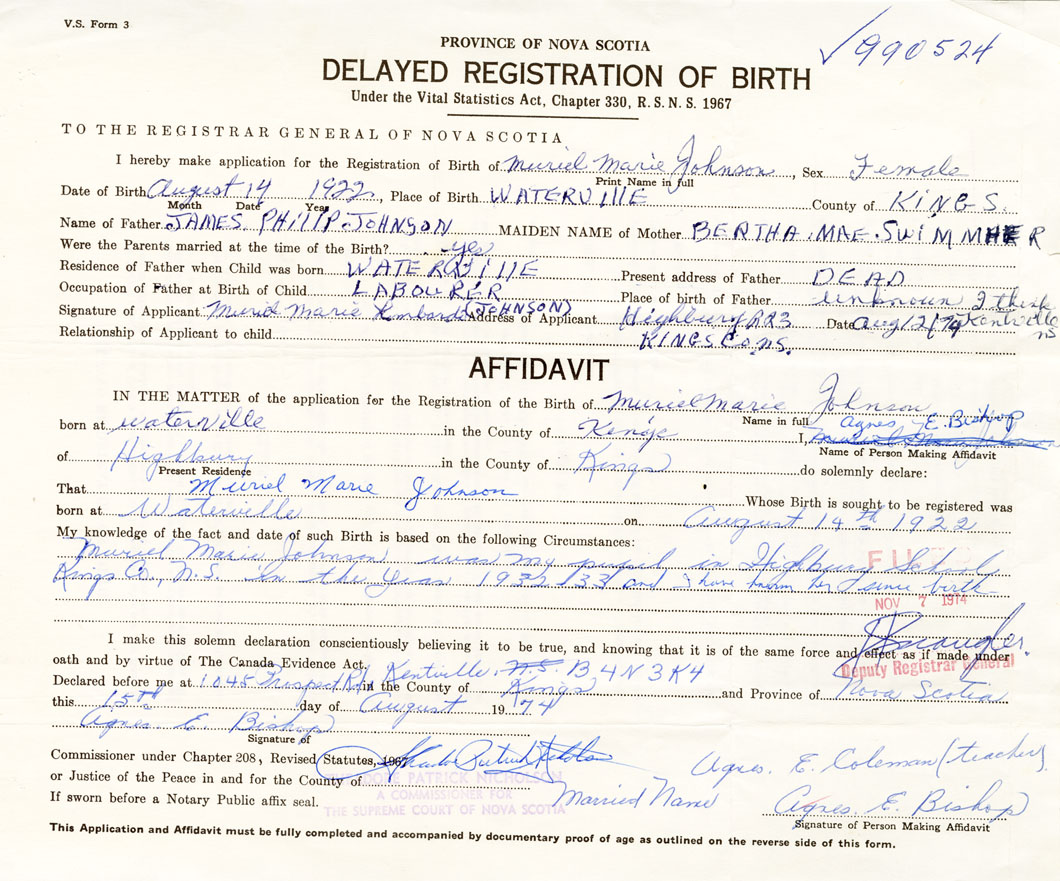 V.S. Form 3
✓990524
PROVINCE OF NOVA SCOTIA
DELAYED REGISTRATION OF BIRTH
Under the Vital Statistics Act, Chapter 330, R.S.N.S. 1967
TO THE REGISTRAR GENERAL OF NOVA SCOTIA
I hereby make application for the Registration of Birth of Muriel Marie Johnson, Sex Female
Print Name in full
Date of Birth August 14 1922, Place of Birth WATERVIllE County of KINGS.
Month Date Year
Name of Father JAMES PHIllP. JOHNSON MAIDEN NAME of Mother BERTHA. MAE. SWIMMHER
Were the Parents married at the time of the Birth? yes
Residence of Father when Child was born WATERVIllE Present address of Father DEAD
Occupation of Father at Birth of Child LABOURER Place of birth of Father unknown I think Kentville NS
Signature of Applicant Muriel Marie (JOHNSON) Address of Applicant Highbury RR3 Date Aug 12/74
KINGS Co NS.
Relationship of Applicant to child
AFFIDAVIT
IN THE MATTER of the application for the Registration of the Birth of Muriel Marie Johnson
Name in full
born at Waterville in the County of Kings I, Agnes E. Bishop
Name of Person Making Affidavit
of Highbury in the County of Kings do solemnly declare:
Present Residence
That Muriel Marie Johnson Whose Birth is sought to be registered was
born at Waterville on August 14th 1922
My knowledge of the fact and date of such Birth is based on the following Circumstances:
Muriel Marie Johnson was my pupil in Highbury School,
Kings Co., N.S. in the year 1932/33 and I have known her since birth
NOV 7 1974
I make this solemn declaration conscientiously believing it to be true, and knowing that it is of the same force and effect as if made under
oath and by virtue of The Canada Evidence Act.
Deputy Registrar General
Declared before me at 1045 Prospect Rd, Kentville, N.S. B4N3K4 in the County of Kings and Province of Nova Scotia
this 15th day of August 1974
Agnes E. Bishop
Signature of
Commissioner under Chapter 208, Revised Statutes, 1967
or Justice of the Peace in and for the County of
THEODORE PATRICK NICHOLSON
A COMMISSIONER FOR
THE SUPREME COURT OF NOVA SCOTIA
If sworn before a Notary Public affix seal.
Agnes. E. Coleman (teacher)
Married Name Agnes. E. Bishop
Signature of Person Making Affidavit
This Application and Affidavit must be fully completed and accompanied by documentary proof of age as outlined on the reverse side of this form.